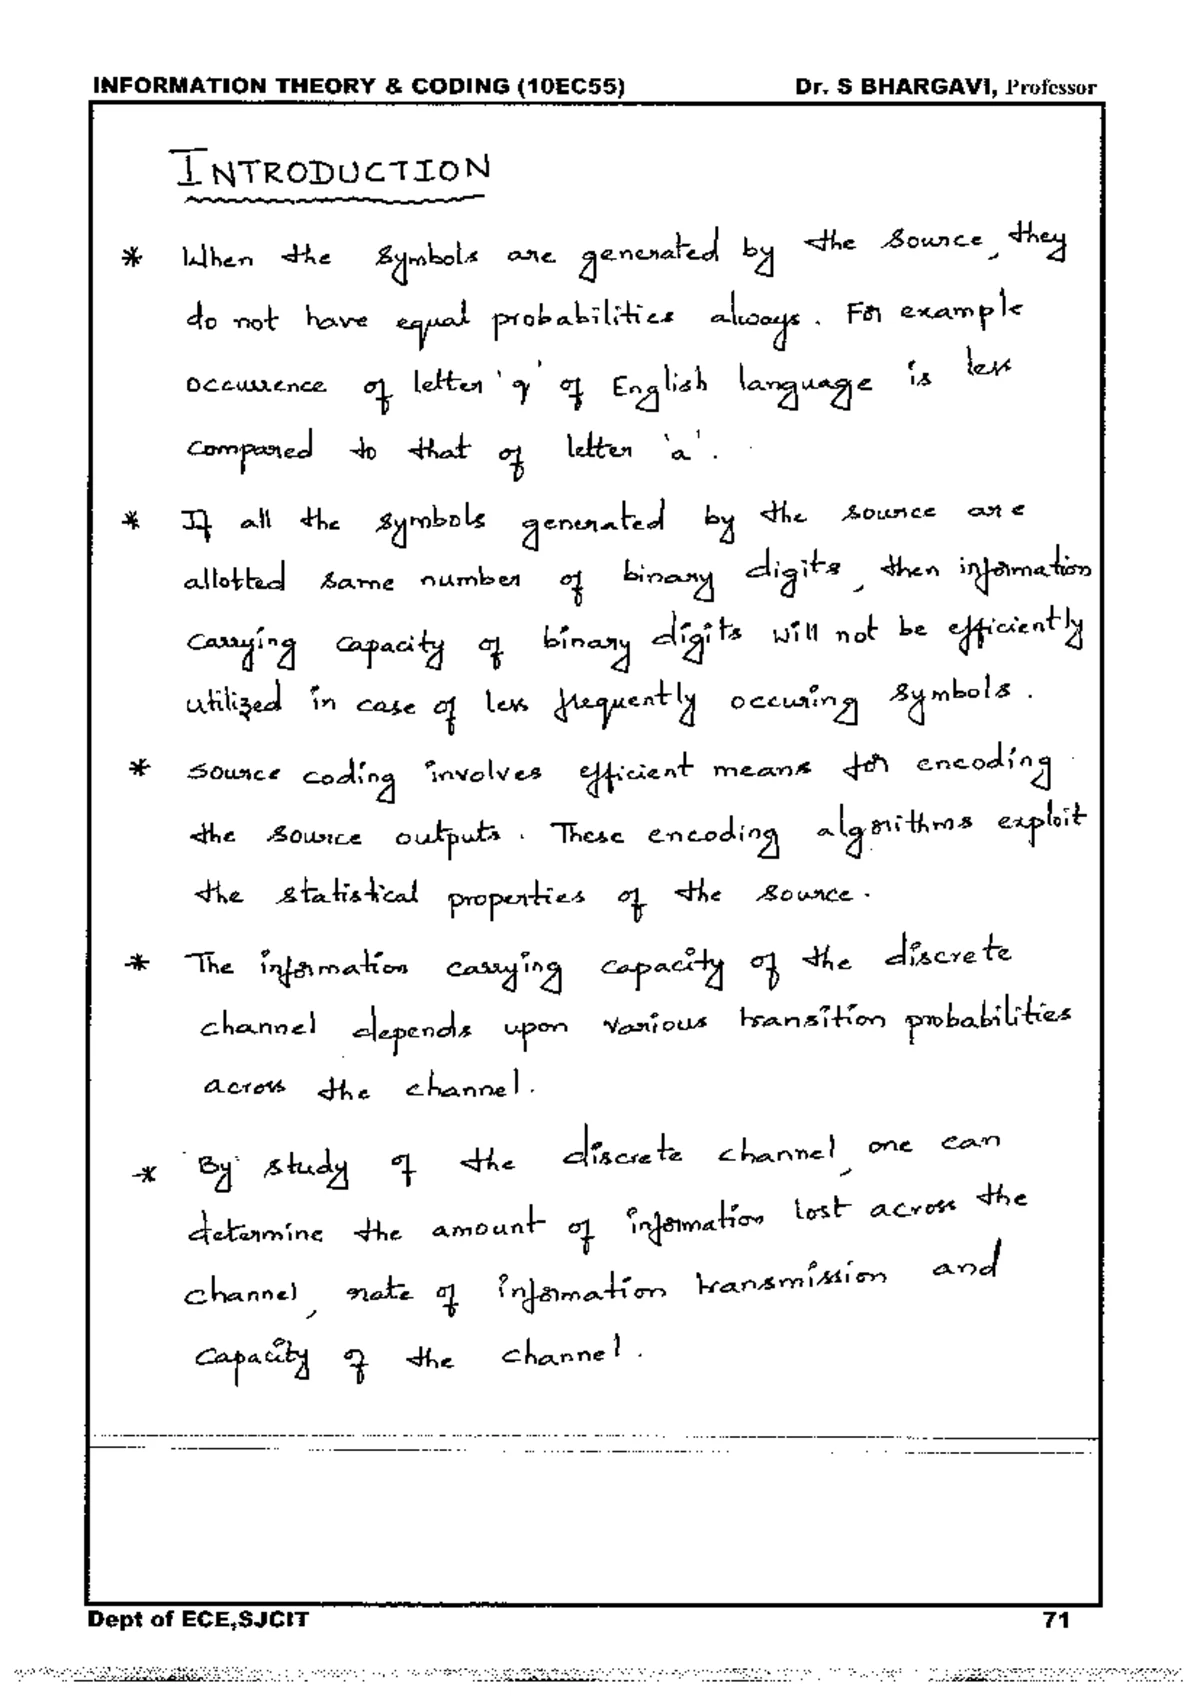 INFORMATION THEORY & CODING (10EC55) Dr. S BHARGAVI, Professor
INTRODUCTION
* When the symbols are generated by the source, they
do not have equal probabilities always. For example
occurrence of letter 'q' of English language is less
compared to that of letter 'a'.
* If all the symbols generated by the source are
allotted same number of binary digits, then information
carrying capacity of binary digits will not be efficiently
utilized in case of less frequently occuring symbols.
* Source coding involves efficient means for encoding
the source outputs. These encoding algorithms exploit
the statistical properties of the source.
* The information carrying capacity of the discrete
channel depends upon various transition probabilities
across the channel.
* By study of the discrete channel, one can
determine the amount of information lost across the
channel, rate of information transmission and
capacity of the channel.
Dept of ECE,SJCIT 71